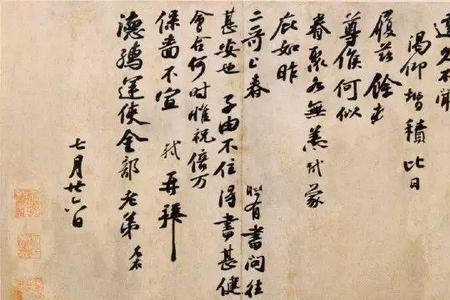 達久不聞
渴仰增積比日
履茲餘熱
尊候何似
眷聚各無恙軾蒙
庇如昨
二哥上春 時有書問往
甚安也 子由不住得書甚健
會合何時惟祝倍万
保嗇不宣 軾再拜
德孺運使金部老弟 左右
七月廿六日